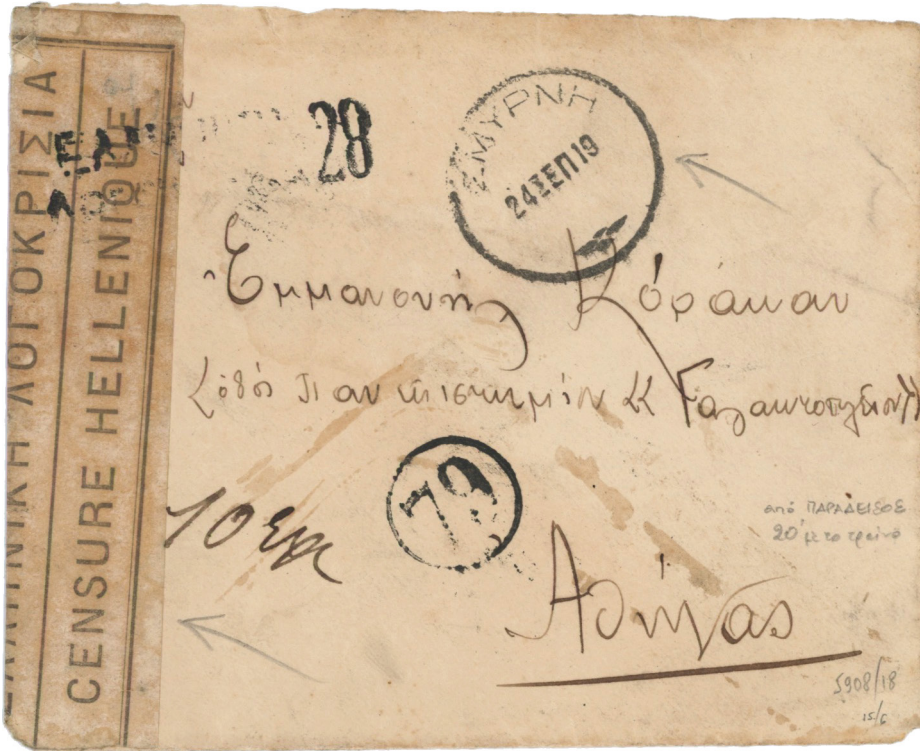 ΕΛΛΗΝΙΚΗ ΛΟΓΟΚΡΙΣΙΑ
CENSURE HELLENIQUE
28
ΣΜΥΡΝΗ
24 ΣΕΠ 19
Ἐμμανουήλ Κόρακαν
ὁδός Πανεπιστημίου «Γαλακτοπωλεῖον»
79
10
Ἀθήνας
από ΠΑΡΑΔΕΙΣΟΣ
20' με το τραίνο
5908/18
15/6